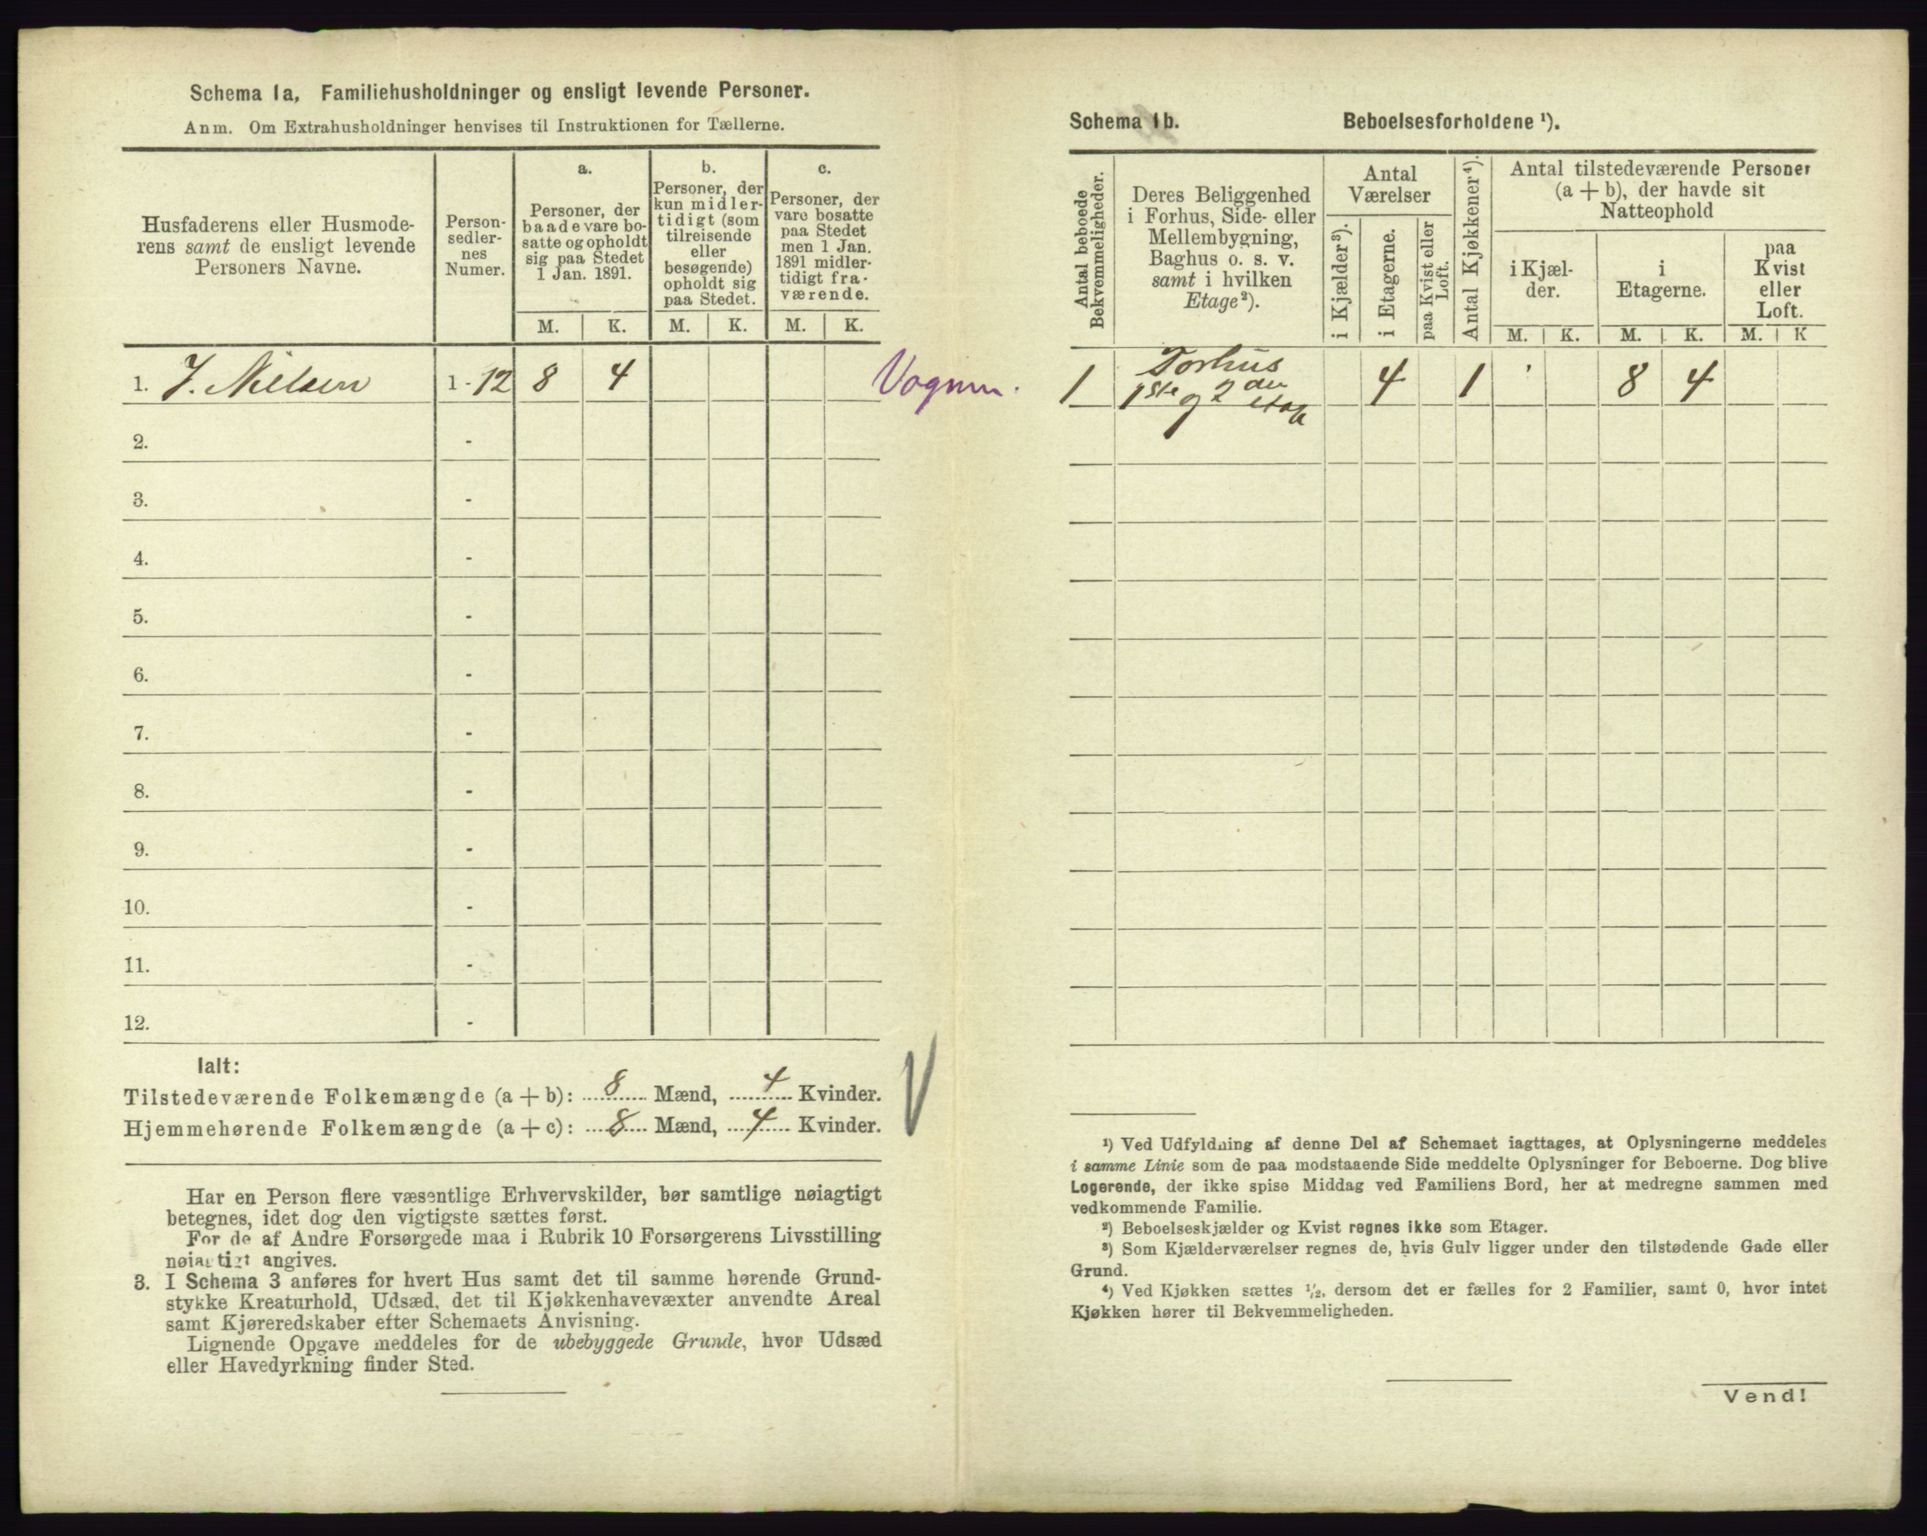 Schema 1a, Familiehusholdninger og ensligt levende Personer.
Anm. Om Extrahusholdninger henvises til Instruktionen for Tællerne.
Husfaderens eller Husmode-
rens samt de ensligt levende
Personers Navne.
Person-
sedler-
nes
Numer.
a.
Personer, der
baade vare bo-
satte og opholdt
sig paa Stedet
1 Jan. 1891.
b.
Personer, der
kun midler-
tidigt (som
tilreisende
eller
besøgende)
opholdt sig
paa Stedet.
c.
Personer, der
vare bosatte
paa Stedet
men 1 Jan.
1891 midler-
tidigt fra-
værende.
M. K. M. K. M. K.
1. J. Nielsen 1 - 12 8 4
2. -
3. -
4. -
5. -
6. -
7. -
8. -
9. -
10. -
11. -
12. -
Ialt:
Tilstedeværende Folkemængde (a + b): 8 Mænd, 4 Kvinder.
Hjemmehørende Folkemængde (a + c): 8 Mænd, 4 Kvinder.
Har en Person flere væsentlige Erhvervskilder, bør samtlige nøiagtigt
betegnes, idet dog den vigtigste sættes først.
For de af Andre Forsørgede maa i Rubrik 10 Forsørgerens Livsstilling
nøiagtigt angives.
3. I Schema 3 anføres for hvert Hus samt det til samme hørende Grund-
stykke Kreaturhold, Udsæd, det til Kjøkkenhavevæxter anvendte Areal
samt Kjøreredskaber efter Schemaets Anvisning.
Lignende Opgave meddeles for de ubebyggede Grunde, hvor Udsæd
eller Havedyrkning finder Sted.
Schema 1b. Beboelsesforholdene ¹).
Antal beboede
Bekvemmeligheder.
Deres Beliggenhed
i Forhus, Side- eller
Mellembygning,
Baghus o. s. v.
samt i hvilken
Etage²).
Antal
Værelser
i Kjælder³).
i Etagerne.
paa Kvist eller
Loft.
Antal Kjøkkener⁴).
Antal tilstedeværende Personer
(a + b), der havde sit
Natteophold
i Kjæl-
der.
i
Etagerne.
paa
Kvist
eller
Loft.
M. K. M. K. M. K
1 Forhus
1ste og 2den etage 4 1 8 4
¹) Ved Udfyldning af denne Del af Schemaet iagttages, at Oplysningerne meddeles
i samme Linie som de paa modstaaende Side meddelte Oplysninger for Beboerne. Dog blive
Logerende, der ikke spise Middag ved Familiens Bord, her at medregne sammen med
vedkommende Familie.
²) Beboelseskjælder og Kvist regnes ikke som Etager.
³) Som Kjælderværelser regnes de, hvis Gulv ligger under den tilstødende Gade eller
Grund.
⁴) Ved Kjøkken sættes ½, dersom det er fælles for 2 Familier, samt 0, hvor intet
Kjøkken hører til Bekvemmeligheden.
Vend!